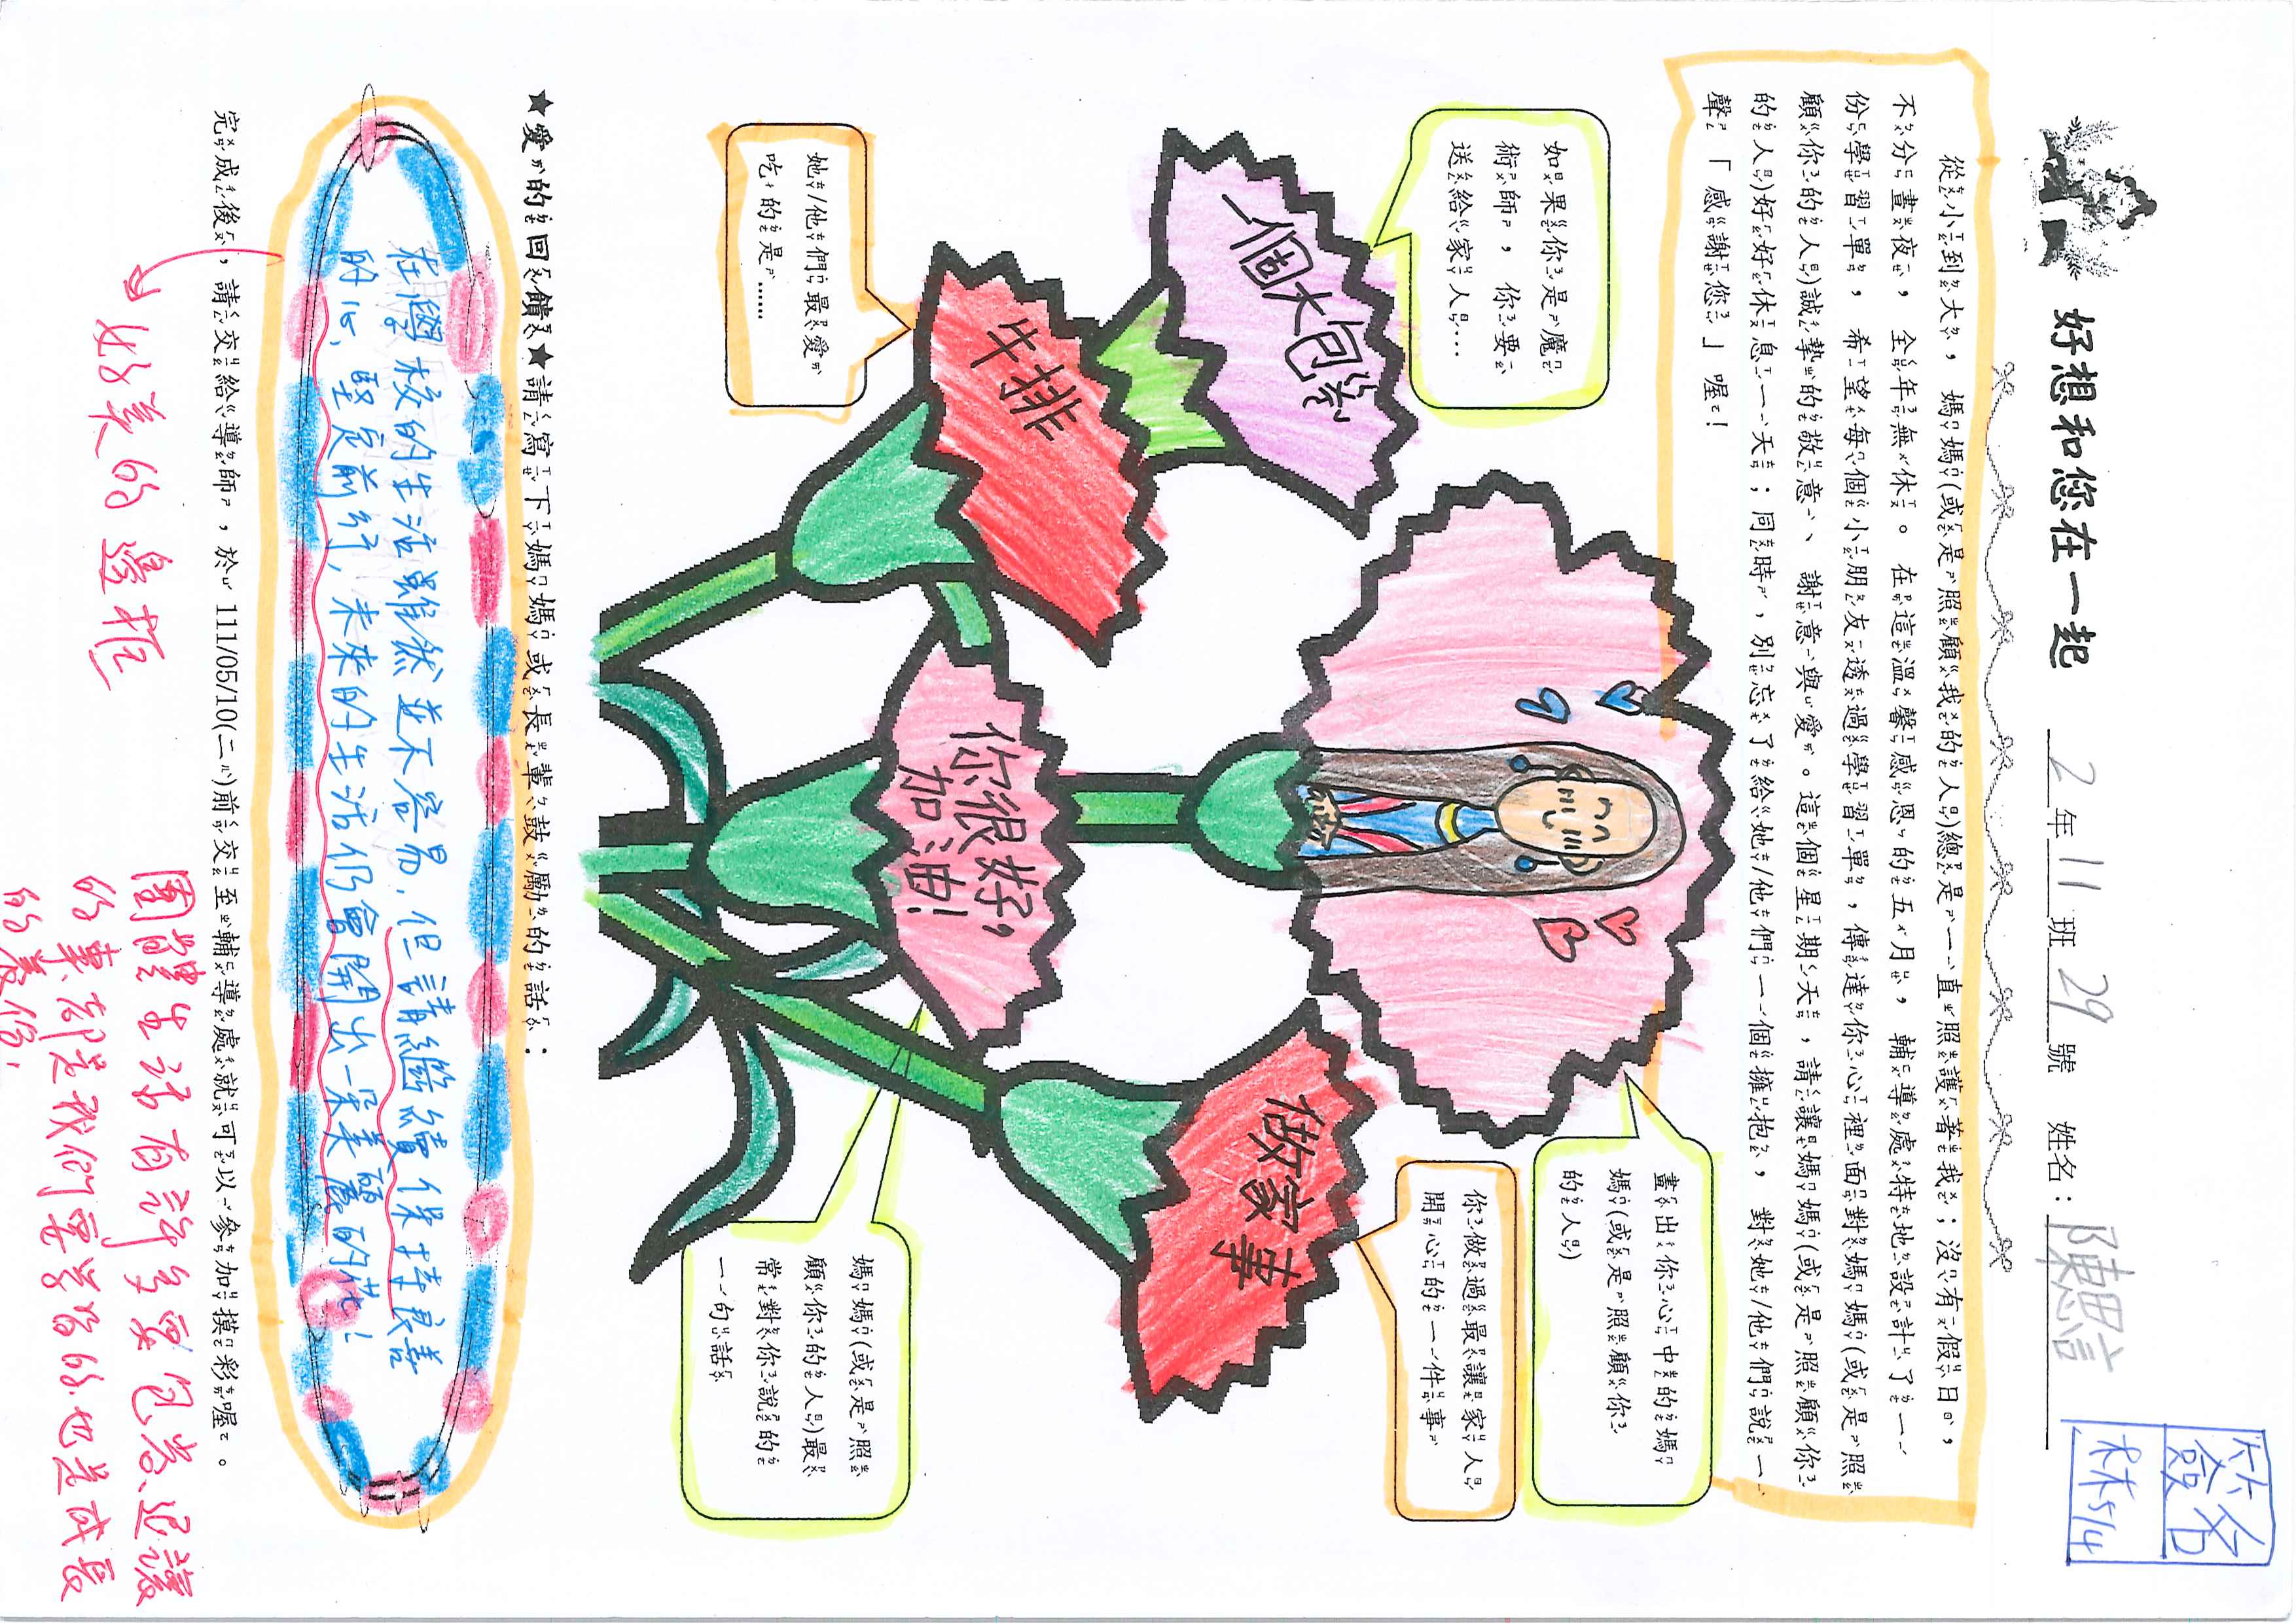 好想和您在一起 2年11班29號 姓名：陳思言
簽名
林5/4
從小到大，媽媽(或是照顧我的人)總是一直照護著我；沒有假日，
不分晝夜，全年無休。在這溫馨感恩的五月，輔導處特地設計了一
份學習單，希望每個小朋友透過學習單，傳達你心裡面對媽媽(或是照
顧你的人)誠摯的敬意、謝意與愛。這個星期天，請讓媽媽(或是照顧你
的人)好好休息一天；同時，別忘了給她/他們一個擁抱，對她/他們說一
聲「感謝您」喔！
如果你是魔
術師，你要
送給家人…
一個大包裹
畫出你心中的媽
媽(或是照顧你
的人)
你做過最讓家人
開心的一件事
做家事
她/他們最愛
吃的是……
牛排
你很好，
加油！
媽媽(或是照
顧你的人)最
常對你說的
一句話
★愛的回饋★請寫下媽媽或長輩鼓勵的話：
在學校的生活雖然並不容易，但請繼續保持良善
的心、堅定前行，未來的生活仍會開出一朵美麗的花！
完成後，請交給導師，於111/05/10(二)前交至輔導處就可以參加摸彩喔。
好美的邊框
團體生活有許多要包容、退讓
的事都是我們要學習的也是成長
的養份！